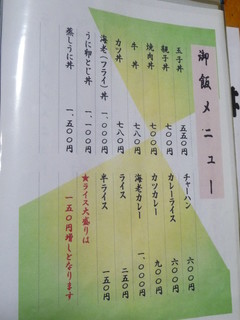 御飯メニュー
玉子丼 五五〇円
親子丼 七〇〇円
焼肉丼 七〇〇円
牛丼 七八〇円
カツ丼 七八〇円
海老(フライ)丼 一、〇〇〇円
うに卵とじ丼 一、一〇〇円
蒸しうに丼 一、五〇〇円
チャーハン 六〇〇円
カレーライス 六〇〇円
カツカレー 九〇〇円
海老カレー 一、〇〇〇円
ライス 二五〇円
半ライス 一五〇円
★ライス大盛りは
一五〇円増しとなります